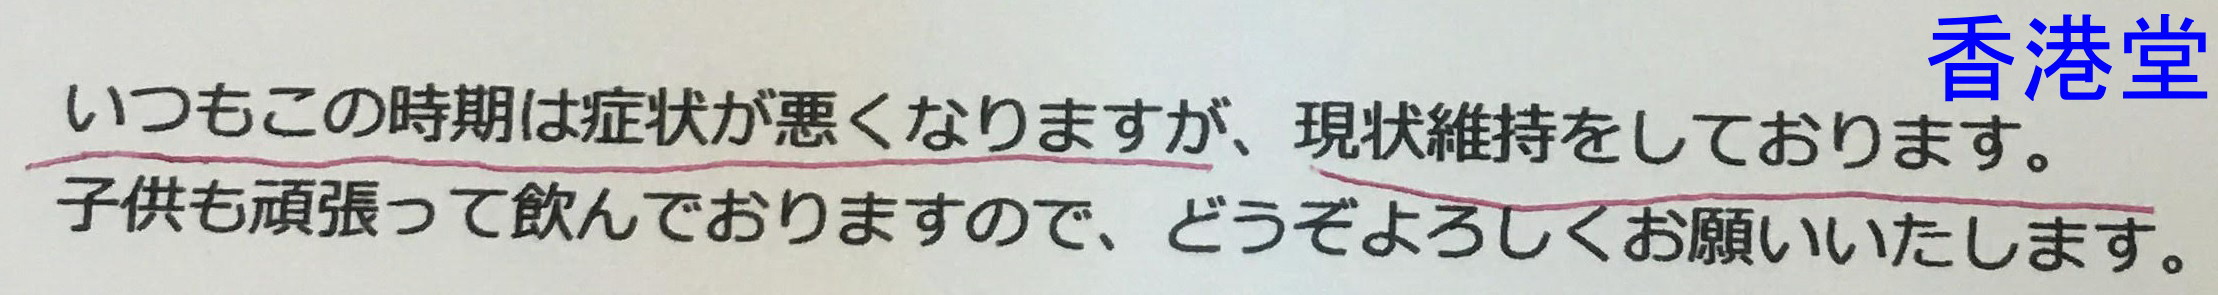 香港堂
いつもこの時期は症状が悪くなりますが、現状維持をしております。
子供も頑張って飲んでおりますので、どうぞよろしくお願いいたします。